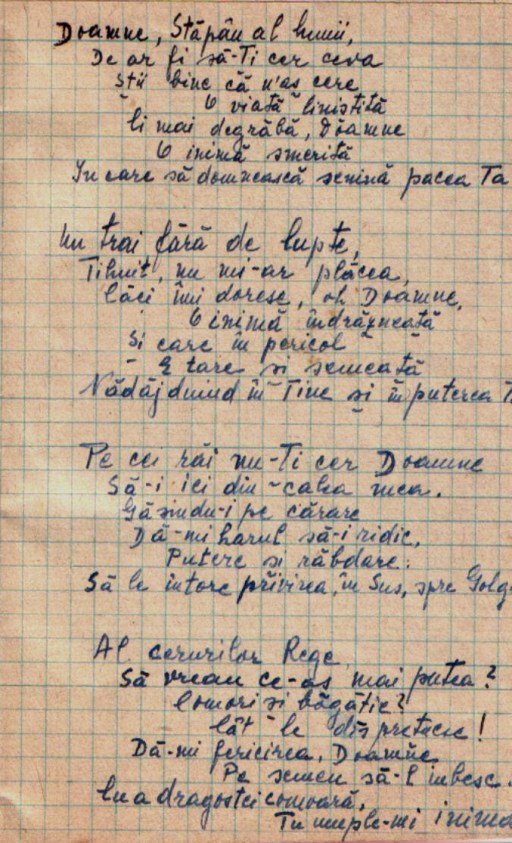 Doamne, Stăpân al lumii,
De ar fi să-Ti cer ceva
Stii bine că n'aş cere
O viată linistită
Ci mai degrabă, Doamne
O inimă smerită
In care să domnească senină pacea Ta
Un trai fără de lupte,
Tihnit, nu mi-ar plăcea,
Căci îmi doresc, oh Doamne,
O inimă îndrăzneată
Si care în pericol
E tare si semeată
Nădăjduind în Tine si în puterea
Pe cei răi nu-Ti cer Doamne
Să-i iei din calea mea.
Găsindu-i pe cărare
Dă-mi harul să-i ridic,
Putere si răbdare.
Să le întorc privirea, în Sus, spre
Al cerurilor Rege
Să vreau ce-as mai putea?
Comori si bogătie?
Cât le dispretuesc!
Dă-mi fericirea, Doamne
Pe semeni să-l iubesc.
Cu a dragostei comoară,
Tu umple-mi inima